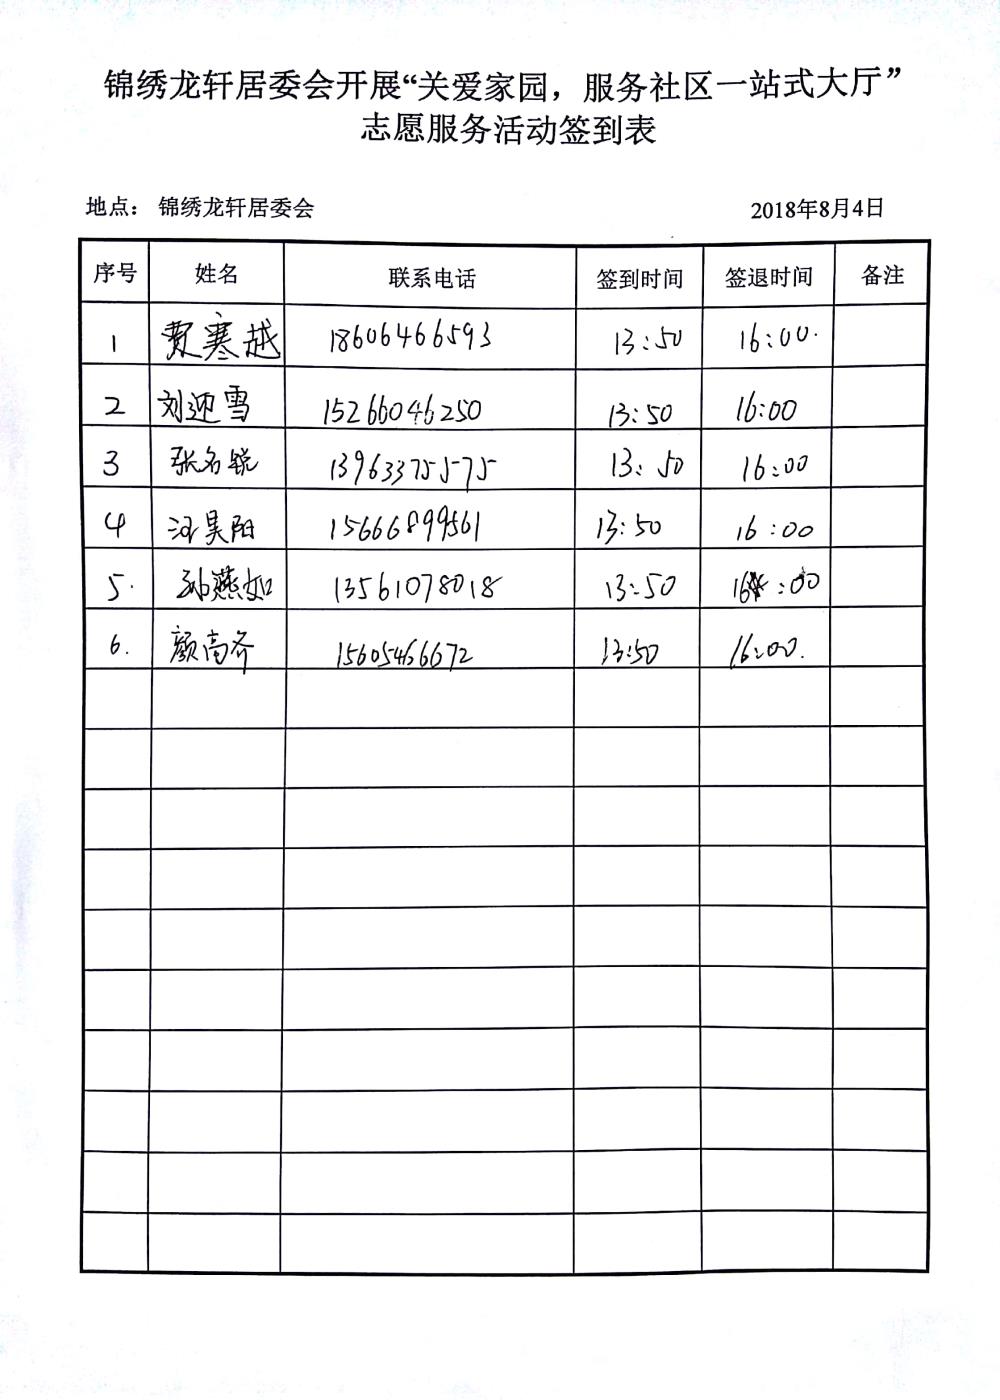 锦绣龙轩居委会开展“关爱家园，服务社区一站式大厅”
志愿服务活动签到表
地点： 锦绣龙轩居委会 2018年8月4日
序号 姓名 联系电话 签到时间 签退时间 备注
1 费寒越 18606466593 13:50 16:00.
2 刘迎雪 15266046250 13:50 16:00
3 张名锐 13963375575 13:50 16:00
4 汪昊阳 15666899561 13:50 16:00
5. 孙燕如 13561078018 13:50 16:00
6. 颜高齐 15605466672 13:50 16:00.